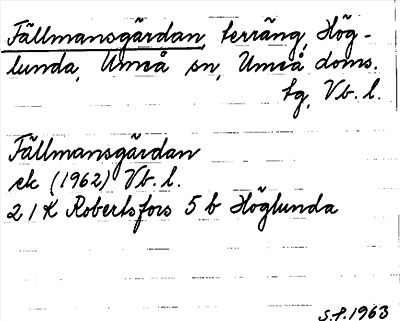 Fällmansgärdan, terräng, Hög-
lunda, Umeå sn, Umeå doms.
tg, Vb. l.
Fällmansgärdan
ek (1962) Vb. l.
21K Robertsfors 5 b Höglunda
S.f. 1963